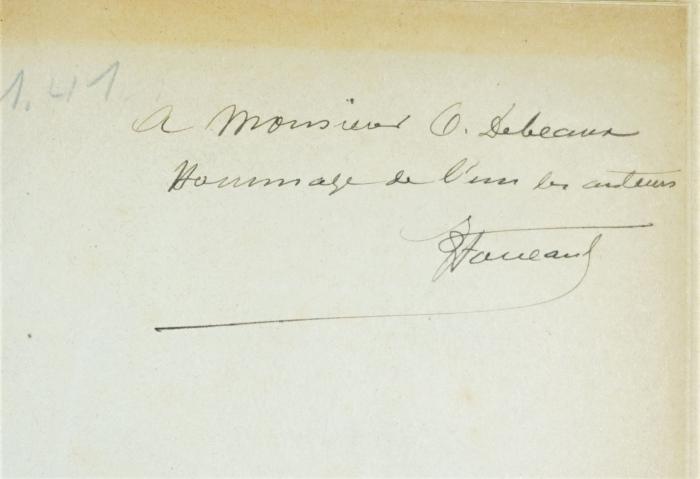 1.41
A Monsieur O. Debeaux
Hommage de l'un des auteurs
J Foucaud